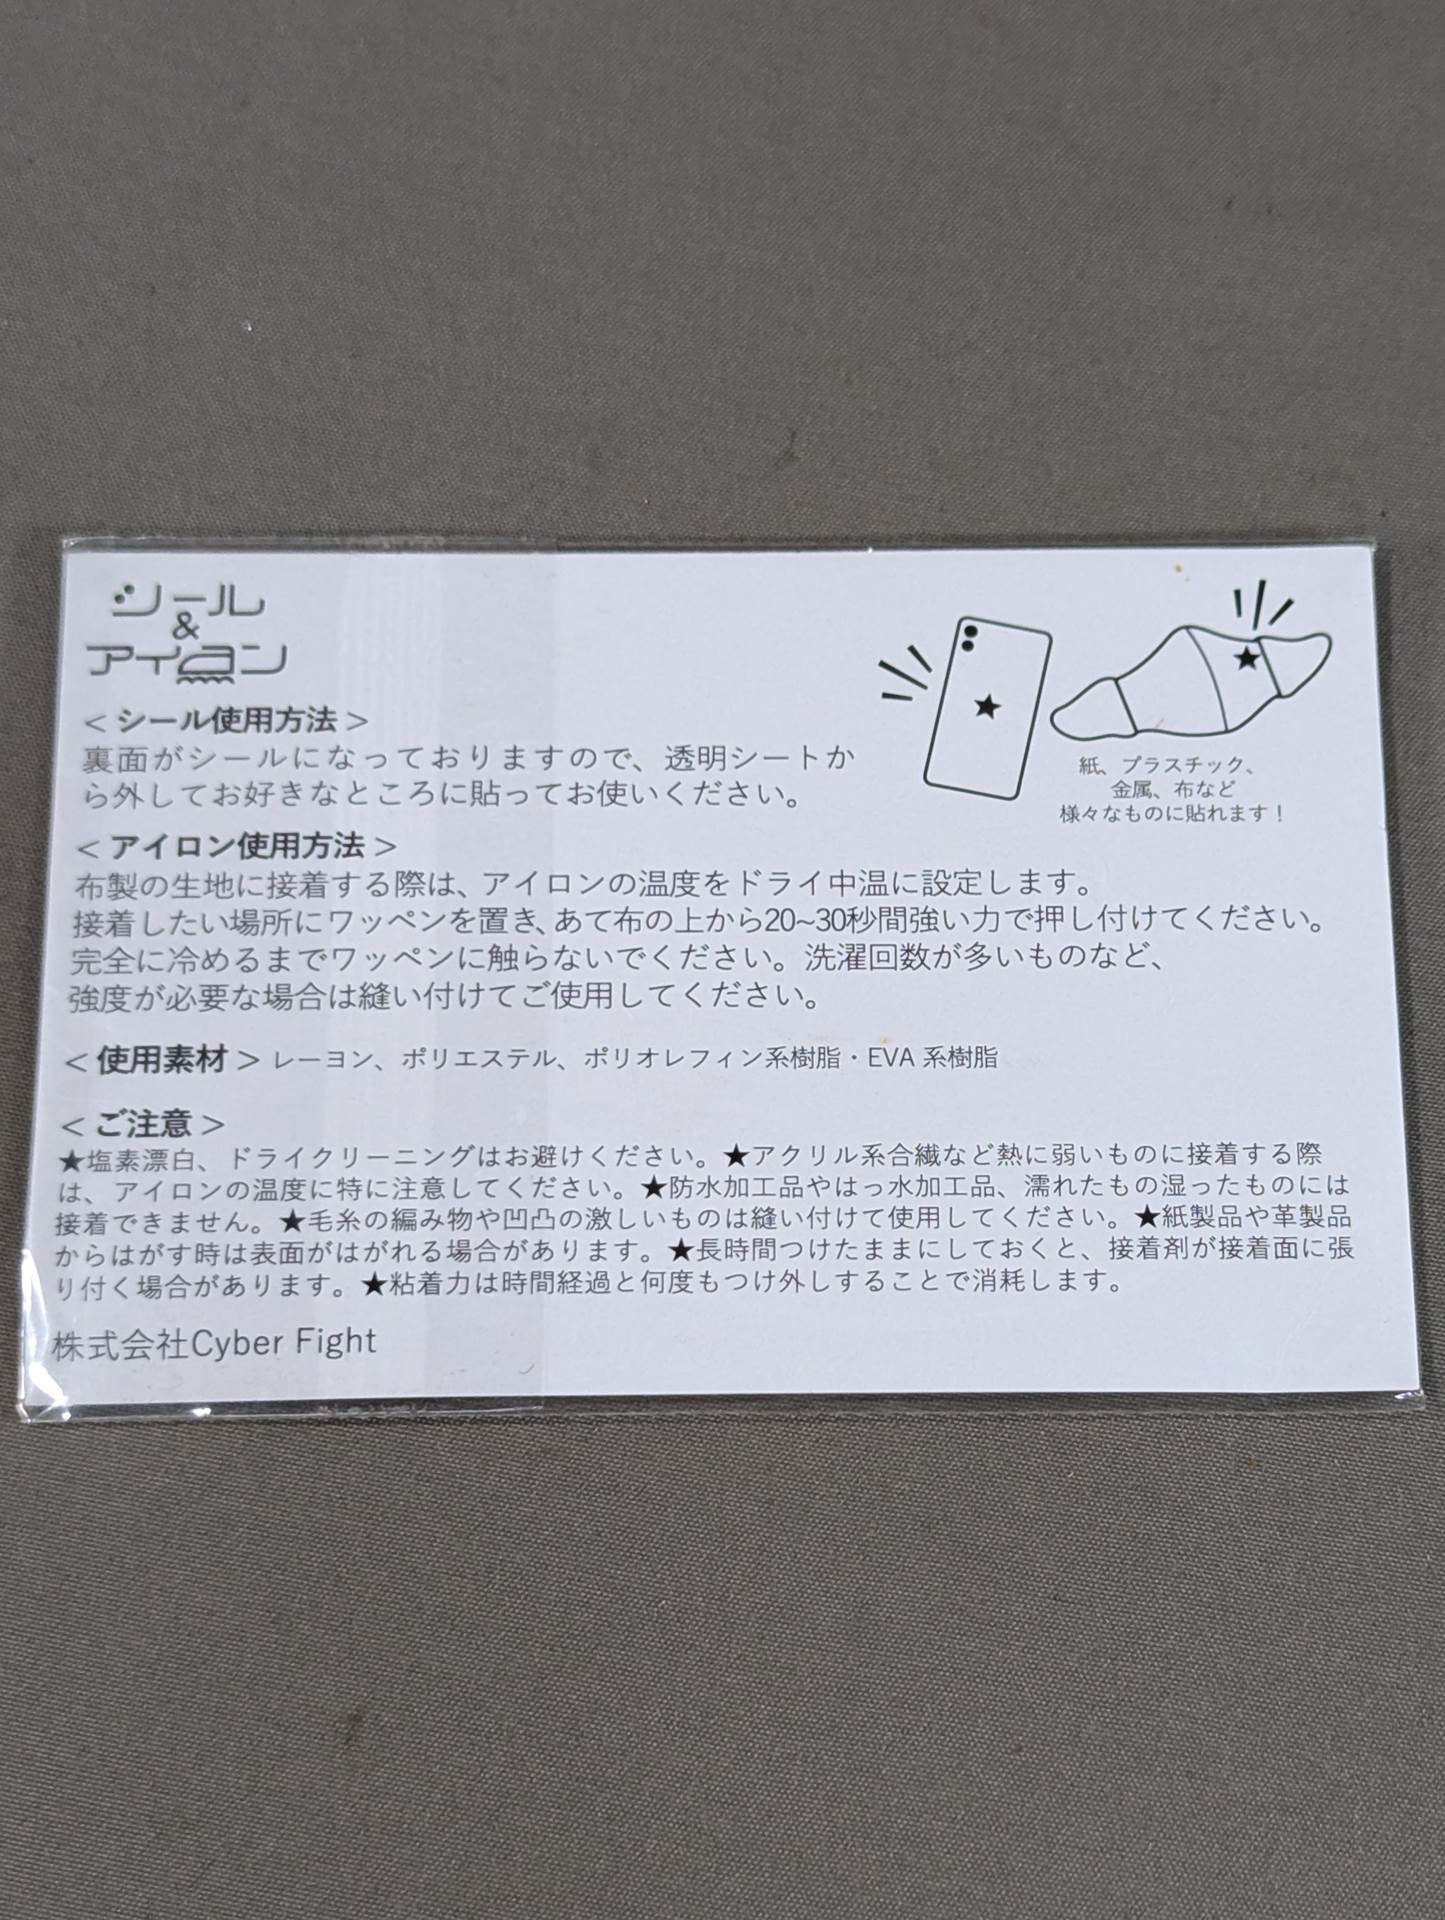 シール
&
アイロン
＜シール使用方法＞
裏面がシールになっておりますので、透明シートか
ら外してお好きなところに貼ってお使いください。
紙、プラスチック、
金属、布など
様々なものに貼れます！
＜アイロン使用方法＞
布製の生地に接着する際は、アイロンの温度をドライ中温に設定します。
接着したい場所にワッペンを置き、あて布の上から20~30秒間強い力で押し付けてください。
完全に冷めるまでワッペンに触らないでください。洗濯回数が多いものなど、
強度が必要な場合は縫い付けてご使用してください。
＜使用素材＞レーヨン、ポリエステル、ポリオレフィン系樹脂・EVA 系樹脂
＜ご注意＞
★塩素漂白、ドライクリーニングはお避けください。★アクリル系合繊など熱に弱いものに接着する際
は、アイロンの温度に特に注意してください。★防水加工品やはっ水加工品、濡れたもの湿ったものには
接着できません。★毛糸の編み物や凹凸の激しいものは縫い付けて使用してください。★紙製品や革製品
からはがす時は表面がはがれる場合があります。★長時間つけたままにしておくと、接着剤が接着面に張
り付く場合があります。★粘着力は時間経過と何度もつけ外しすることで消耗します。
株式会社Cyber Fight